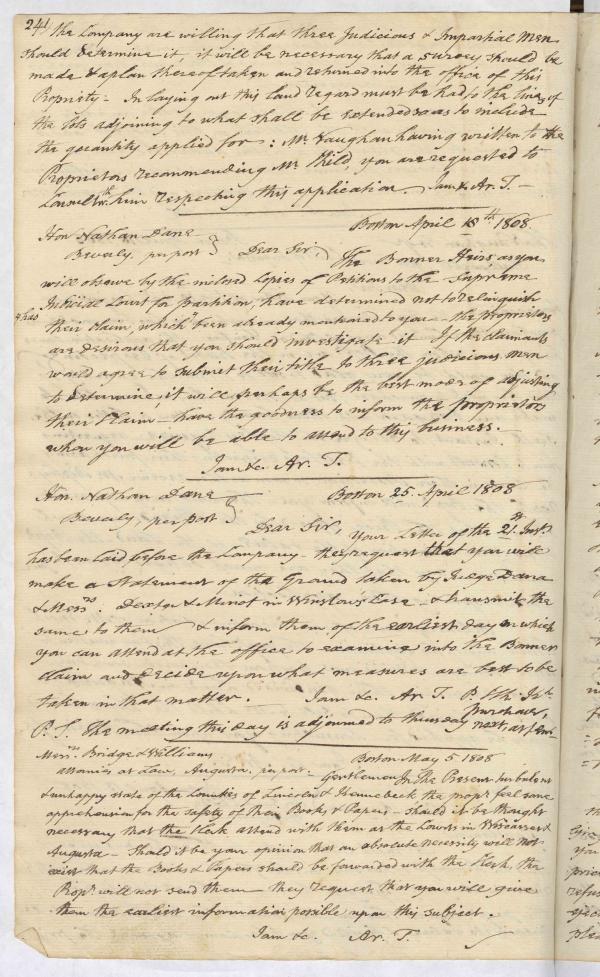 241
the Company are willing that three Judicious & Impartial Men
should determine it, it will be necessary that a survey should be
made & a plan thereof taken and returned into the office of this
Propriety - In laying out this land regard must be had to the lines of
the lots adjoining to what shall be extended so as to include
the quantity applied for : Mr. Vaughan having written to the
Proprietors recommending Mr. Kild, you are requested to
him respecting this application. I am &c Ar. T. -
Boston April 18th 1808.
Hon Nathan Dane
Beverly, per post } Dear Sir, The Bonner Heirs, as you
will observe by the inclosed Copies of Petitions to the Supreme
Judicial Court for partition, have determined not to relinquish
their claim, which & has been already mentioned to you - the proprietors
are desirous that you should investigate it If the claimants
would agree to submit their title to three judicious men
to determine, it will perhaps be the best mode of adjusting
their Claim - have the goodness to inform the proprietors
when you will be able to attend to this business. -
I am &c. Ar. T.
Hon. Nathan Dane Boston 25 April 1808
Beverly, per post } Dear Sir, Your Letter of the 21st Inst.
has been laid before the Company - they request that you will
make a Statement of the Ground taken by Judge Dana
& Messrs. Dexter & Minot in Winslow's Case & transmit the
same to them & inform them of the earliest day on which
you can attend at the office to examine into the Bonner
claim and decide upon what measures are best to be
taken in that matter. I am &c. Ar. T. P. Kk.
Purchase,
P. S. The meeting this day is adjourned to thursday next, at
Messrs. Bridge & Williams Boston May 5. 1808
attornies at Law, Augusta, per post - Gentlemen In the Present turbulent
& unhappy state of the Counties of Lincoln & Kennebeck the propr. feel some
apprehension for the safety of their Books & Papers - should it be thought
necessary that the Clerk attend with them as the Courts in Wiscasset &
Augusta - Should it be your opinion that an absolute necessity will not
exist that the Books & Papers should be forwarded with the Clerk, the
Propr. will not send them - they request that you will give
them the earliest information possible upon this subject.
I am &c. Ar. T.